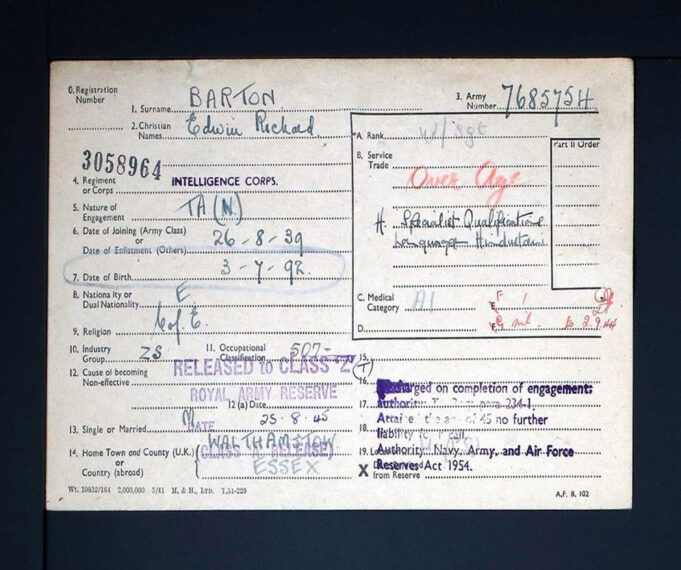 0. Registration Number
1. Surname BARTON
2. Christian Names Edwin Richard
3. Army Number 7685754
3058964
4. Regiment or Corps INTELLIGENCE CORPS.
5. Nature of Engagement TA (N.)
6. Date of Joining (Army Class) or Date of Enlistment (Others) 26-8-39
7. Date of Birth 3-7-92.
8. Nationality or Dual Nationality E
9. Religion C of E.
10. Industry Group ZS
11. Occupational Classification 507-
12. Cause of becoming Non-effective
RELEASED to CLASS "Z" (T)
ROYAL ARMY RESERVE
12 (a) Date
DATE 25.8.45
(CLASS A RELEASE)
13. Single or Married M
14. Home Town and County (U.K.) or Country (abroad) WALTHAMSTOW ESSEX
Wt. 10832/164 2,000,000 5/41 M. & H., Ltd. T.51-229
*A. Rank W/Sgt
Part II Order
B. Service Trade
Over Age
H. Specialist Qualifications
Language Hindustani
C. Medical Category A1
D.
F
to 2.9.44
15.
16.
17.
18.
19.
Discharged on completion of engagement:
authority
Attained the age of 45 no further
liability
Authority. Navy, Army, and Air Force
Reserves Act 1954.
X
from Reserve
A.F. B, 102